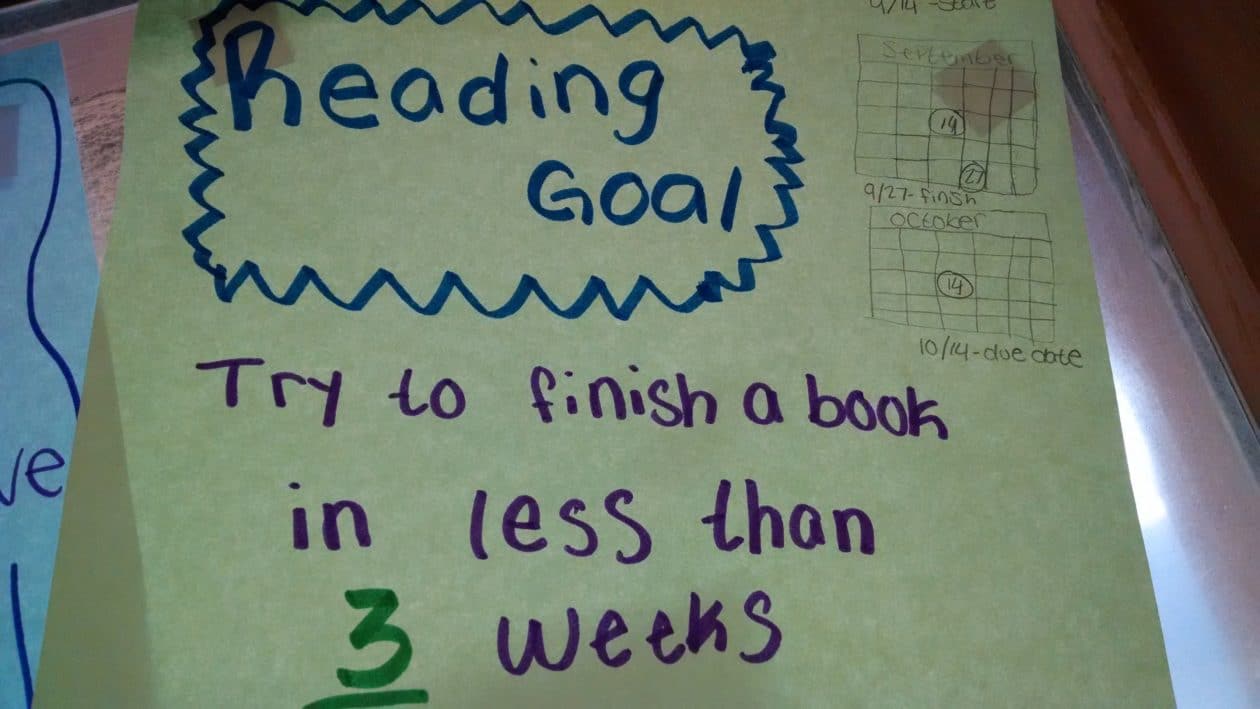 Reading
Goal
Try to finish a book
in less than
3 weeks
9/14 - Start
September
14
27
9/27- finsh
october
14
10/14-due date
ve